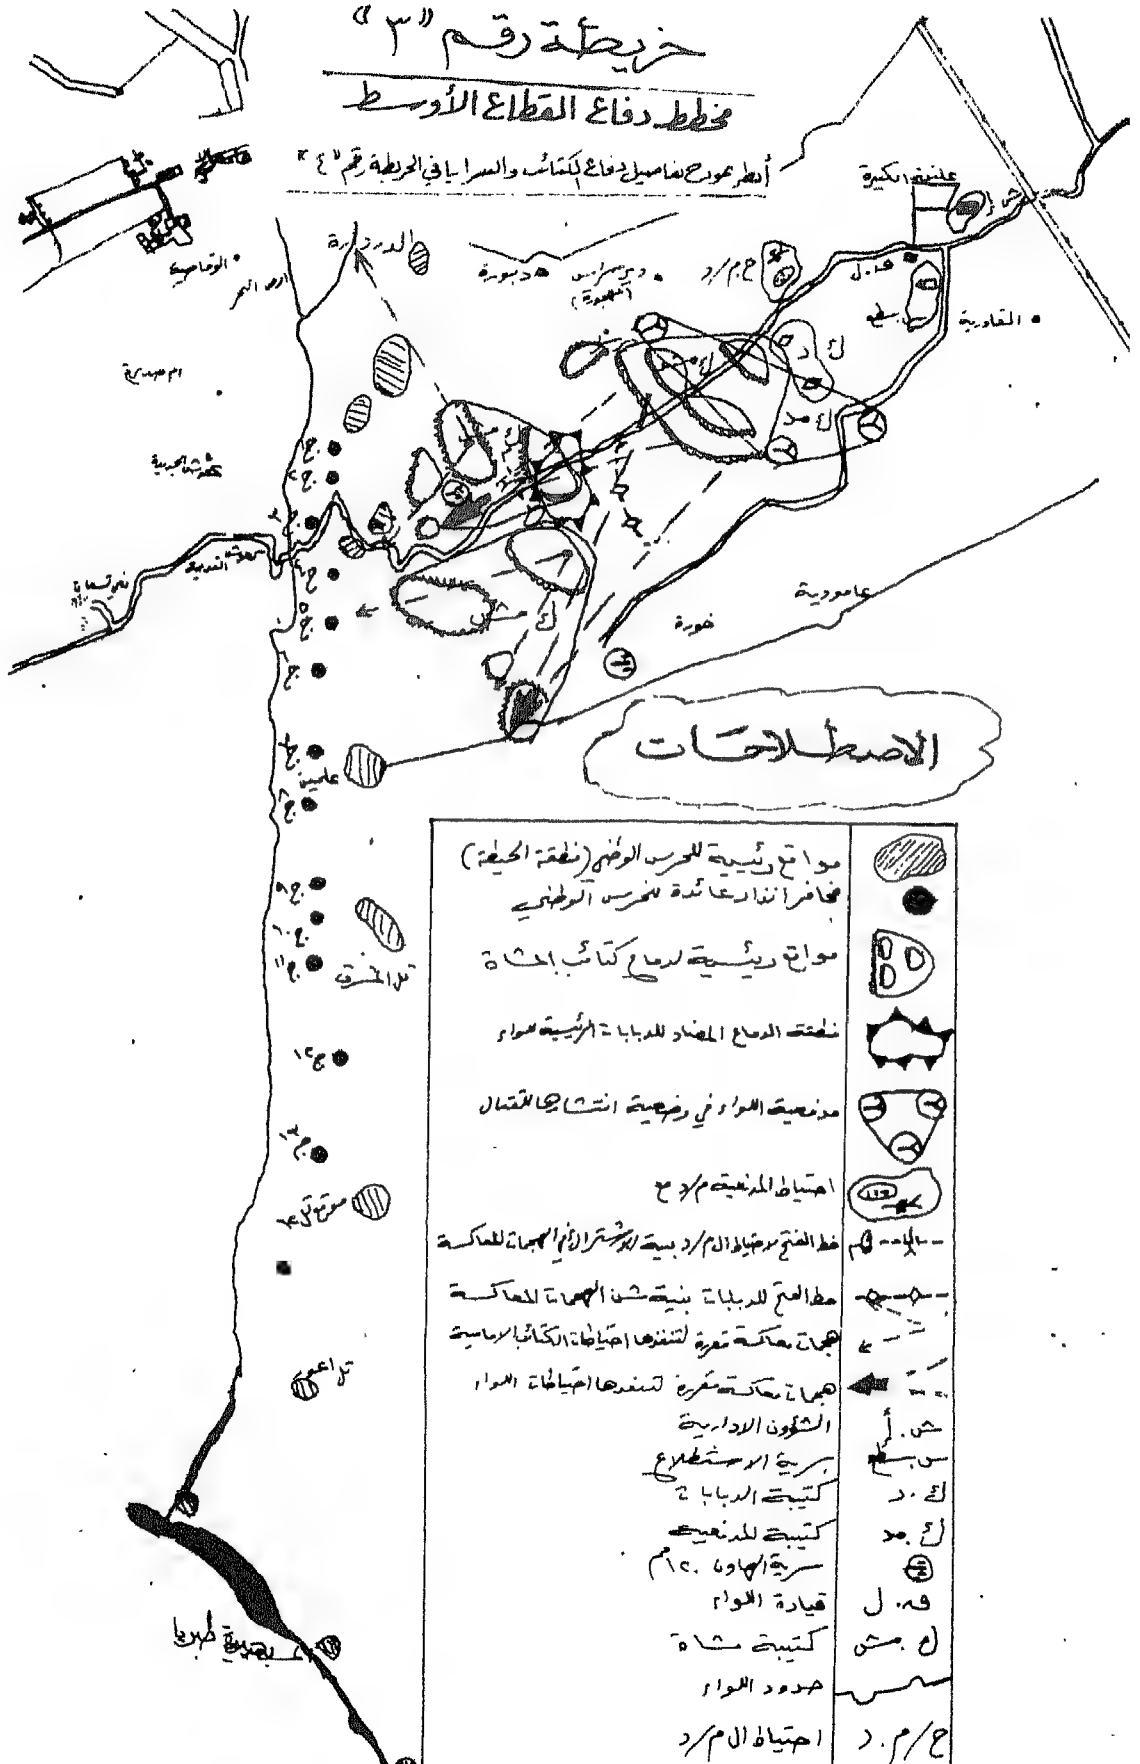 خريطة رقم "٣"
مخطط دفاع القطاع الأوسط
أنظر نموذج تفاصيل دفاع الكتائب والسرايا في الخريطة رقم "٤"
ش.أ
الدردارة
دبورة
ح/م/د
ق.ل
س.سطع
القادرية
ك.د
ك.مد
ك.مش
ج١
ج٢
ج٣
ج٤
ج٥
ج٦
ج٧
ج٨
ج٩
ج١٠
ج١١
ج١٢
ج١٣
عامودية
خورة
علمين
تل المشرق
تل اعور
بحيرة طبريا
الاصطلاحات
مواقع رئيسية للحرس الوطني (منطقة الحيطة)
مخافر انذار عائدة للحرس الوطني
مواقع رئيسية لدفاع كتائب المشاة
منطقة الدفاع المضاد للدبابات الرئيسية للواء
مدفعية اللواء في وضعية انتشارها للقتال
احتياط المدفعية م/د مع
خط الفتح لاحتياط ال م/د بنية الاشتراك في الهجمات المعاكسة
خط الفتح للدبابات بنية شن الهجمات المعاكسة
هجمات معاكسة مقررة لتنفذها احتياطات الكتائب الامامية
هجمات معاكسة مقررة لتنفذها احتياطات اللواء
ش.أ الشؤون الادارية
س.سطع سرية الاستطلاع
ك.د كتيبة الدبابات
ك.مد كتيبة المدفعية
سرية الهاون ١٢٠مم
ق.ل قيادة اللواء
ك.مش كتيبة مشاة
حدود اللواء
ح/م.د احتياط ال م/د